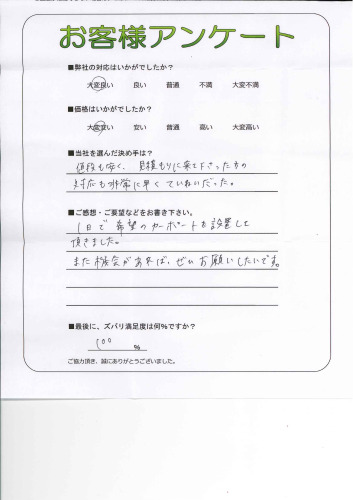 お客様アンケート
■弊社の対応はいかがでしたか?
大変良い 良い 普通 不満 大変不満
■価格はいかがでしたか?
大変安い 安い 普通 高い 大変高い
■当社を選んだ決め手は?
値段も安く、見積もりに来て下さった方の
対応も非常に早くていねいだった。
■ご感想・ご要望などをお書き下さい。
1日で希望のカーポートを設置して
頂きました。
また機会があれば、ぜひお願いしたいです。
■最後に、ズバリ満足度は何%ですか?
100 %
ご協力頂き、誠にありがとうございました。